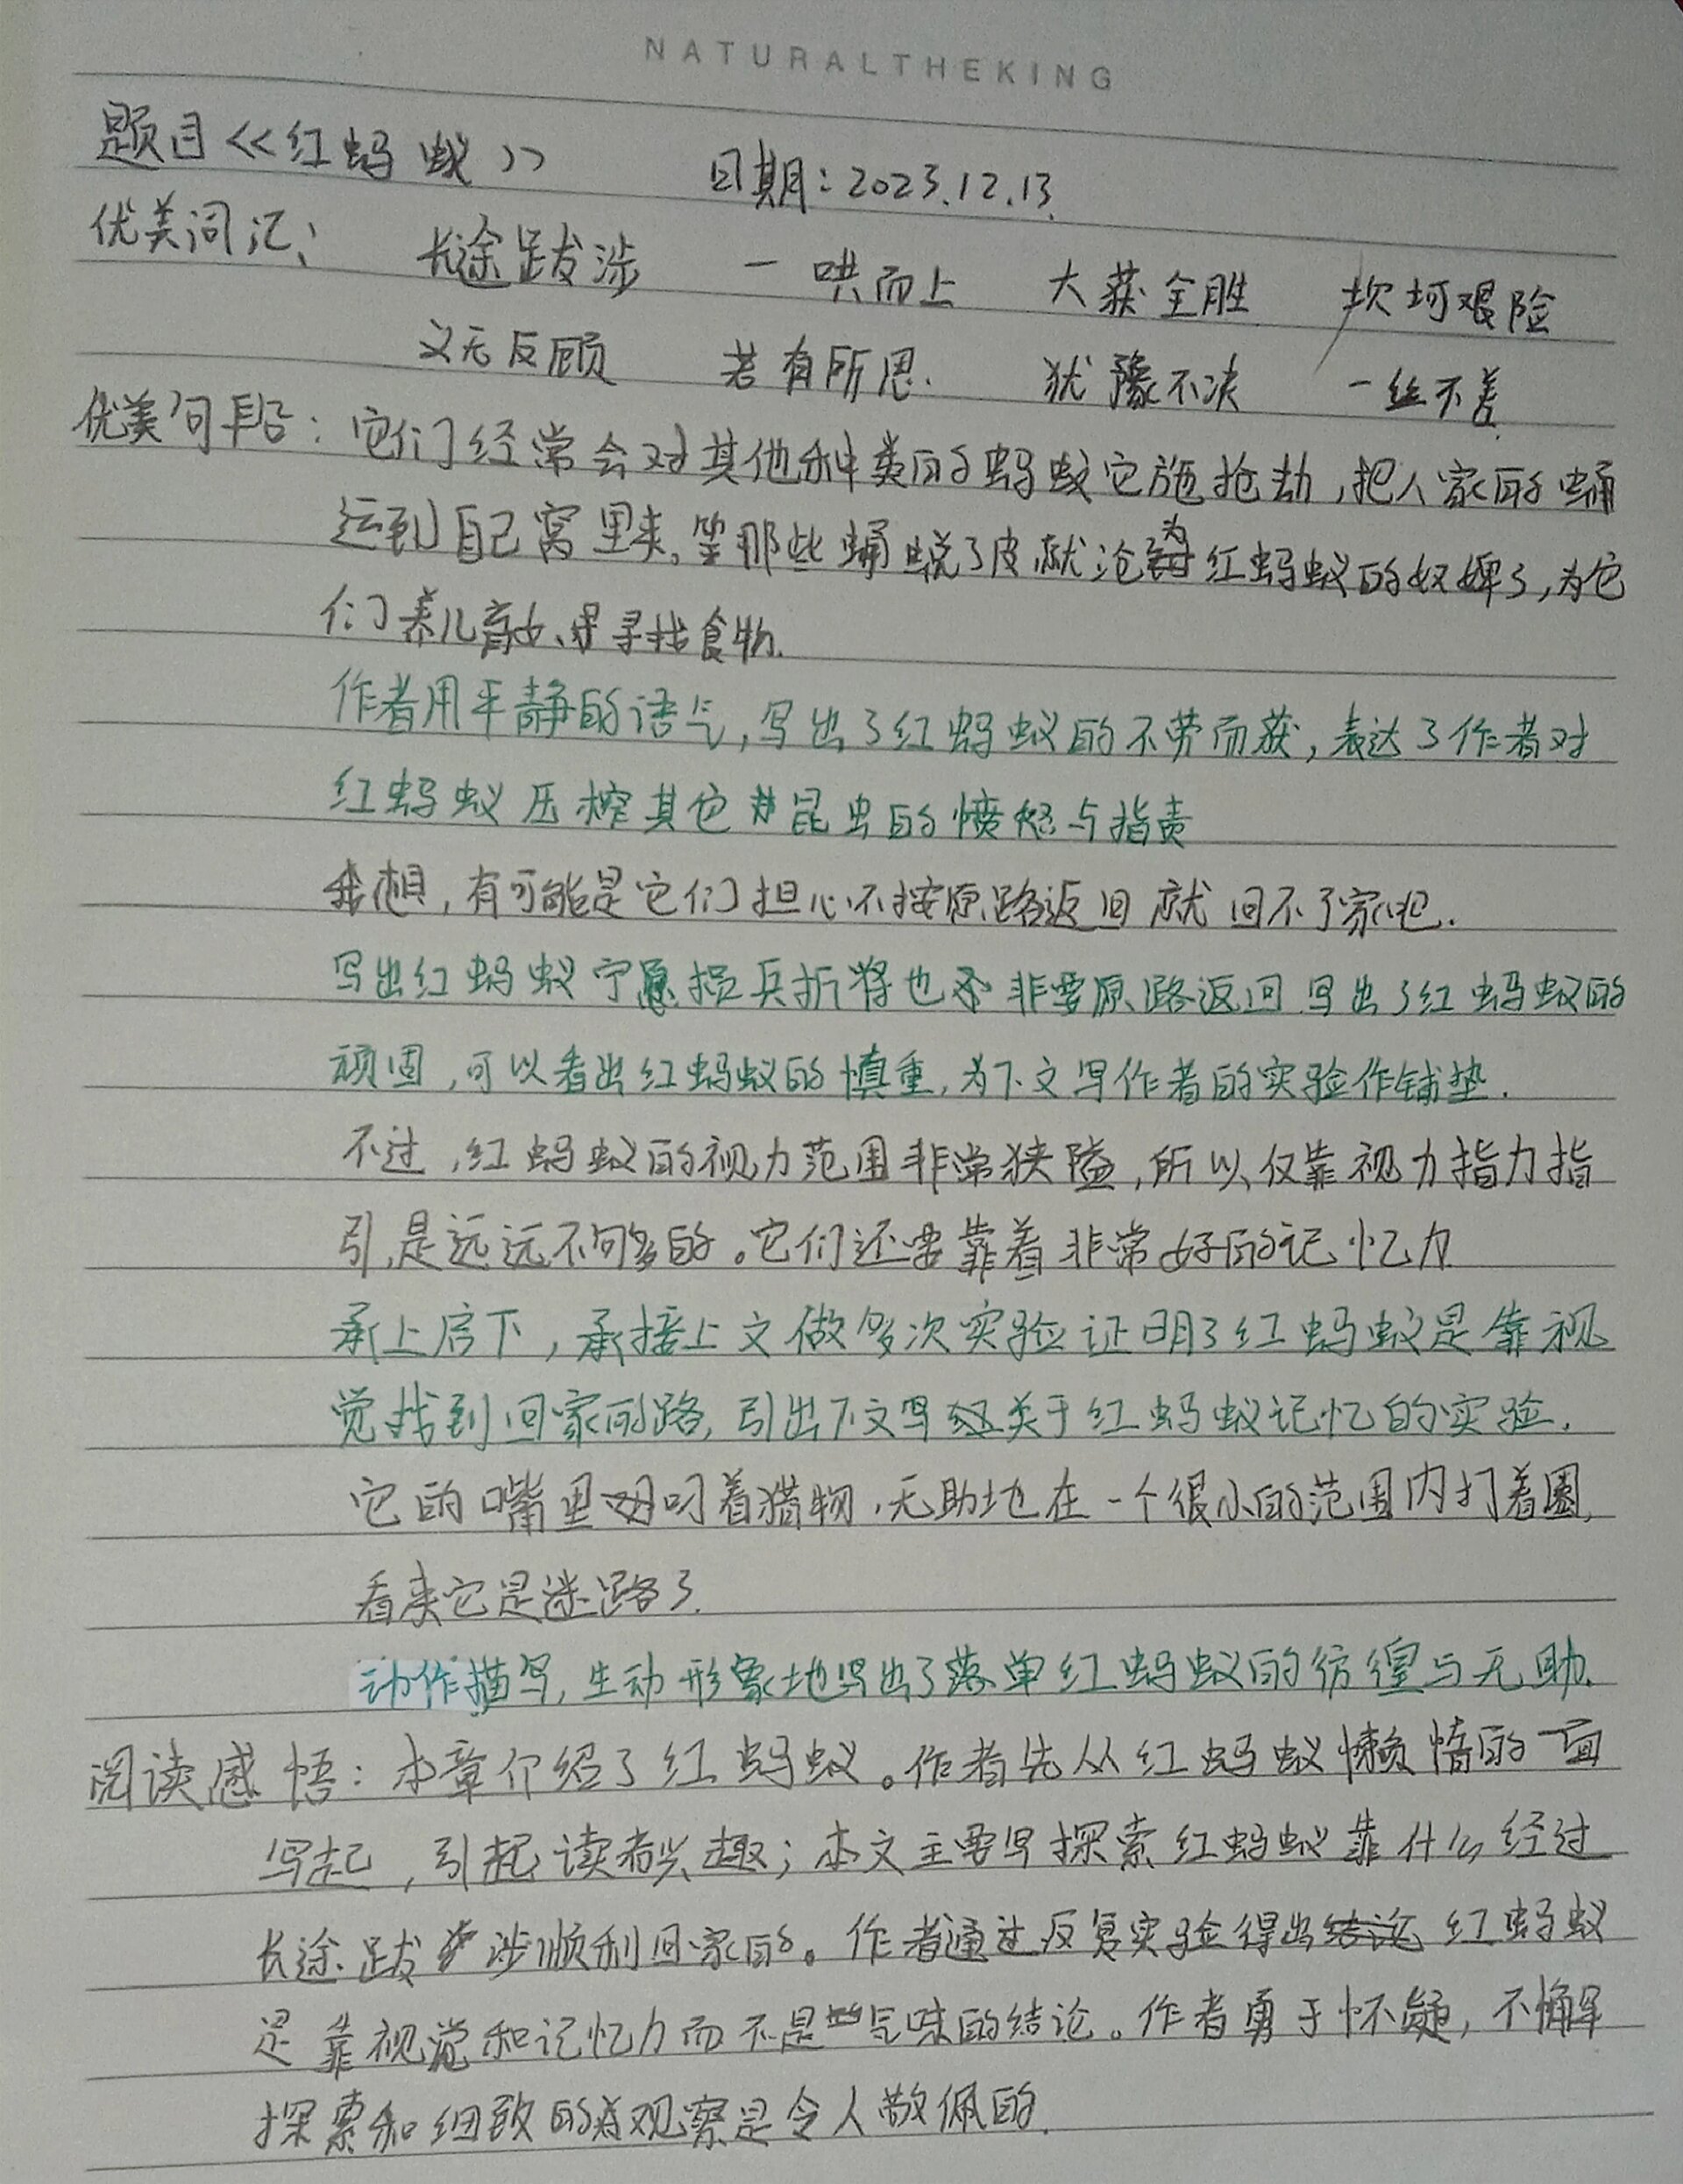 NATURALTHEKING
题目《红蚂蚁》 日期:2023.12.13.
优美词汇: 长途跋涉 一哄而上 大获全胜 坎坷艰险
义无反顾 若有所思. 犹豫不决 一丝不差.
优美句段:它们经常会对其他种类的蚂蚁实施抢劫,把人家的蛹
运到自己窝里来。等那些蛹蜕了皮就沦为红蚂蚁的奴婢了,为它
们养儿育女、寻找食物.
作者用平静的语气,写出了红蚂蚁的不劳而获,表达了作者对
红蚂蚁压榨其它昆虫的愤怒与指责
我想,有可能是它们担心不按原路返回就回不了家吧.
写出红蚂蚁宁愿损兵折将也非要原路返回.写出了红蚂蚁的
顽固,可以看出红蚂蚁的慎重,为下文写作者的实验作铺垫.
不过,红蚂蚁的视力范围非常狭隘,所以仅靠视力指力指
引,是远远不够的。它们还要靠着非常好的记忆力
承上启下,承接上文做多次实验证明了红蚂蚁是靠视
觉找到回家的路,引出下文写关于红蚂蚁记忆的实验.
它的嘴里叼着猎物,无助地在一个很小的范围内打着圈,
看来它是迷路了.
动作描写,生动形象地写出了落单红蚂蚁的彷徨与无助.
阅读感悟:本章介绍了红蚂蚁。作者先从红蚂蚁懒惰的一面
写起,引起读者兴趣;本文主要写探索红蚂蚁靠什么经过
长途跋涉顺利回家的。作者通过反复实验得出红蚂蚁
是靠视觉和记忆力而不是气味的结论。作者勇于怀疑,不懈
探索和细致的观察是令人敬佩的.